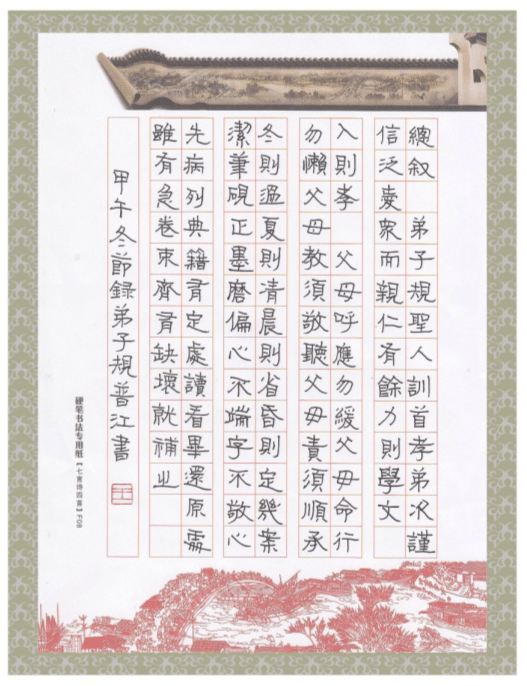 總叙 弟子規聖人訓首孝弟次謹
信泛愛衆而親仁有餘力則學文
入則孝 父母呼應勿緩父母命行
勿懶父母教須敬聽父母責須順承
冬則温夏則清晨則省昏則定幾案
潔筆硯正墨磨偏心不端字不敬心
先病列典籍有定處讀看畢還原處
雖有急卷束齊有缺壞就補之
甲午冬節録弟子規普江書
王
硬笔书法专用纸【七言诗四首】F08